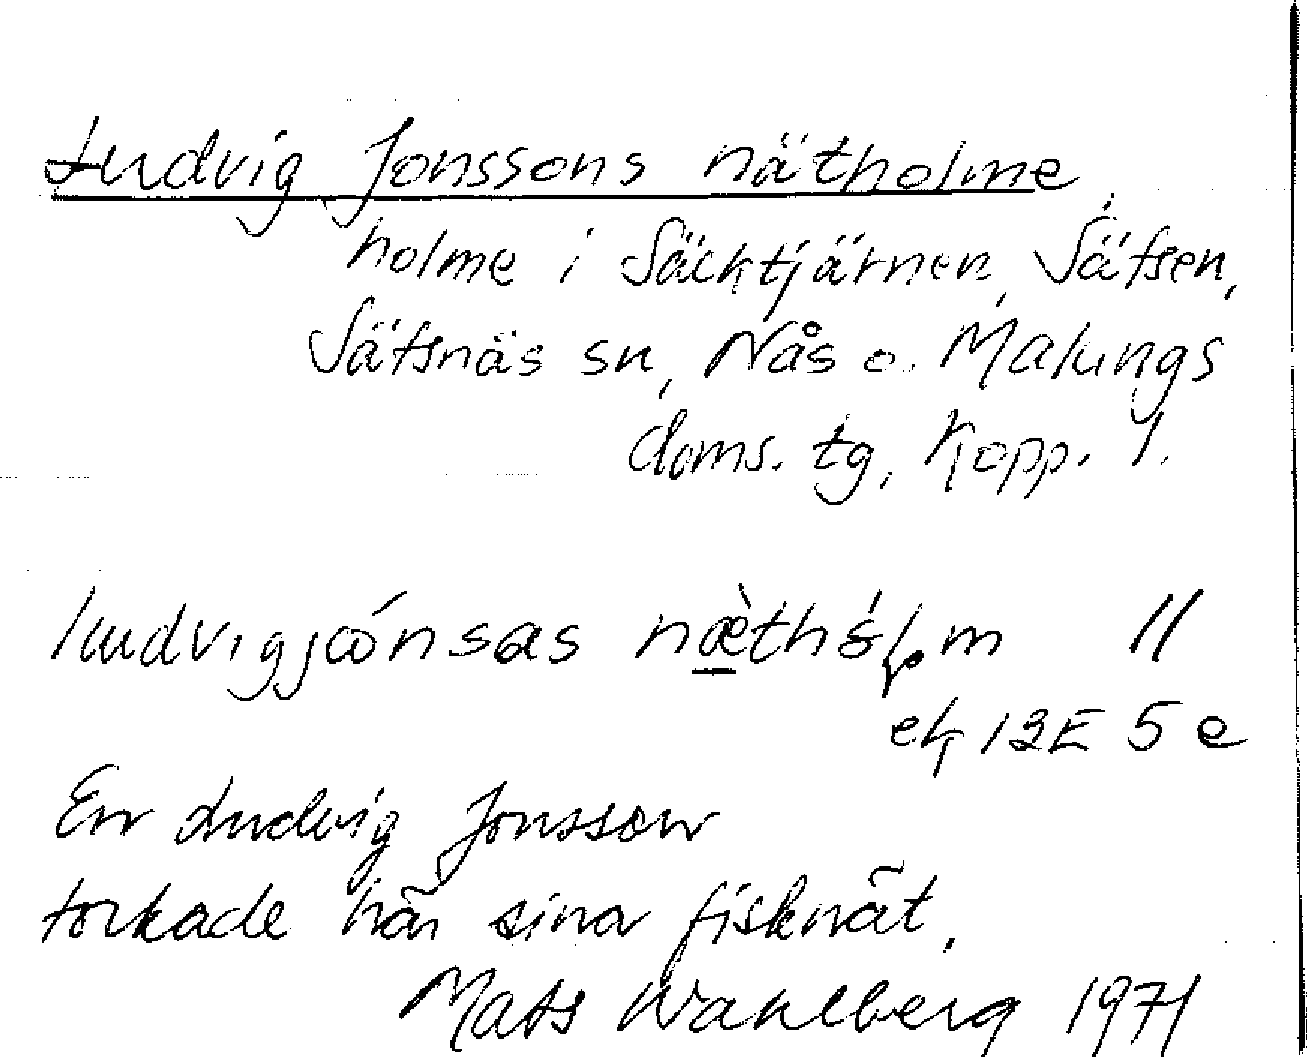 Ludvig Jonssons nätholme,
holme i Säcktjärnen, Säfsen,
Säfsnäs sn, Nås o. Malungs
doms. tg, Kopp. l.
ludvigjɷ́nsas
ek 13E 5 e
En Ludvig Jonsson
torkade här sina fisknät.
Mats Wahlberg 1971